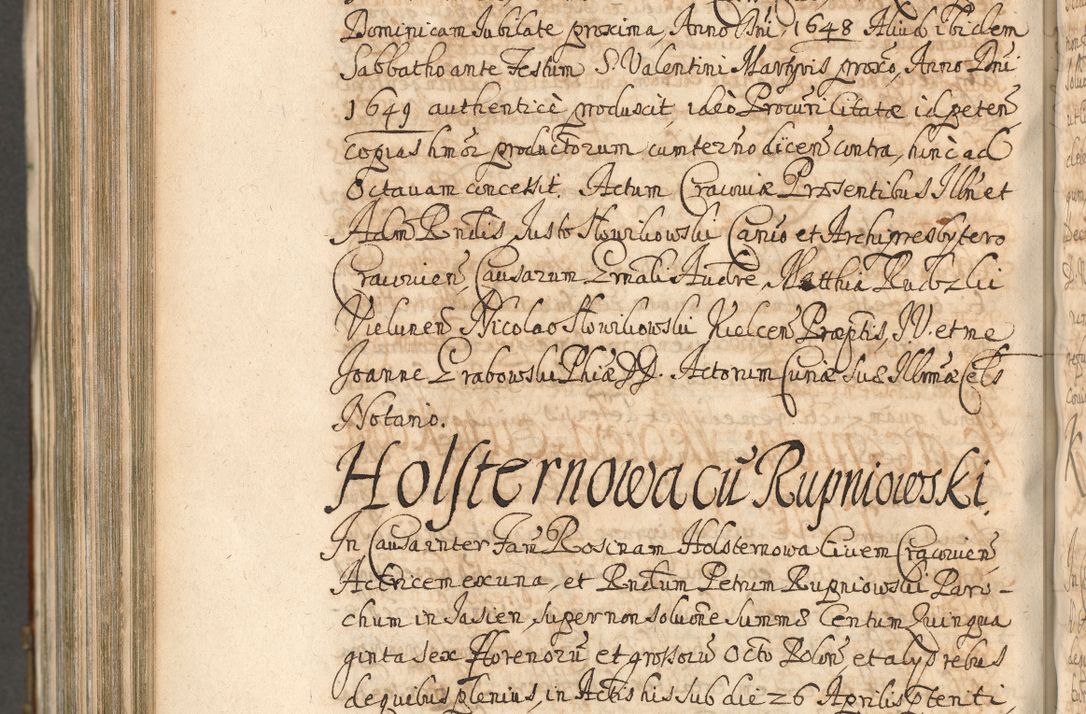 Dominicam Jubilate proxima, Anno Dni, 1648 Aliud Ibidem
Sabbatho ante Festum S. Valentini Martyris proxo, Anno Dni
1649 authenticè produxit, ideò Procuri licitatæ id petenẽ
copias hmõr productorum cum termño dicenẽ contra, hinc ad
Octauam concessit. Actum Cracouiæ Præsentibus Illri et
Adm Rndis Justo Słowikowski Canõ et Archipresbytero
Cracouienẽ, Causarum Grnali Auditre, Matthia Rudzki
Vielunenẽ Nicolao Słowikowski Kielcenẽ Præptis, JV. et me
Joanne Grabowski Phiæ D. Actorum Curiæ Suæ Illrmæ Cels
Notario.
Holsternowa cũ Rupniowski.
In Causa inter Fam̃ Rosinam Holsternowa Ciuem Cracouienẽ
Actricem ex una, et Rndum Petrum Rupniowski Paro-
chum in Jasien, super non solutione summæ Centum Quinqua
ginta sex florenorũ et grossorũ Octo Polonẽ et alijs rebus
de quibus plenius, in Actis his sub die 26 Aprilis pteriti,